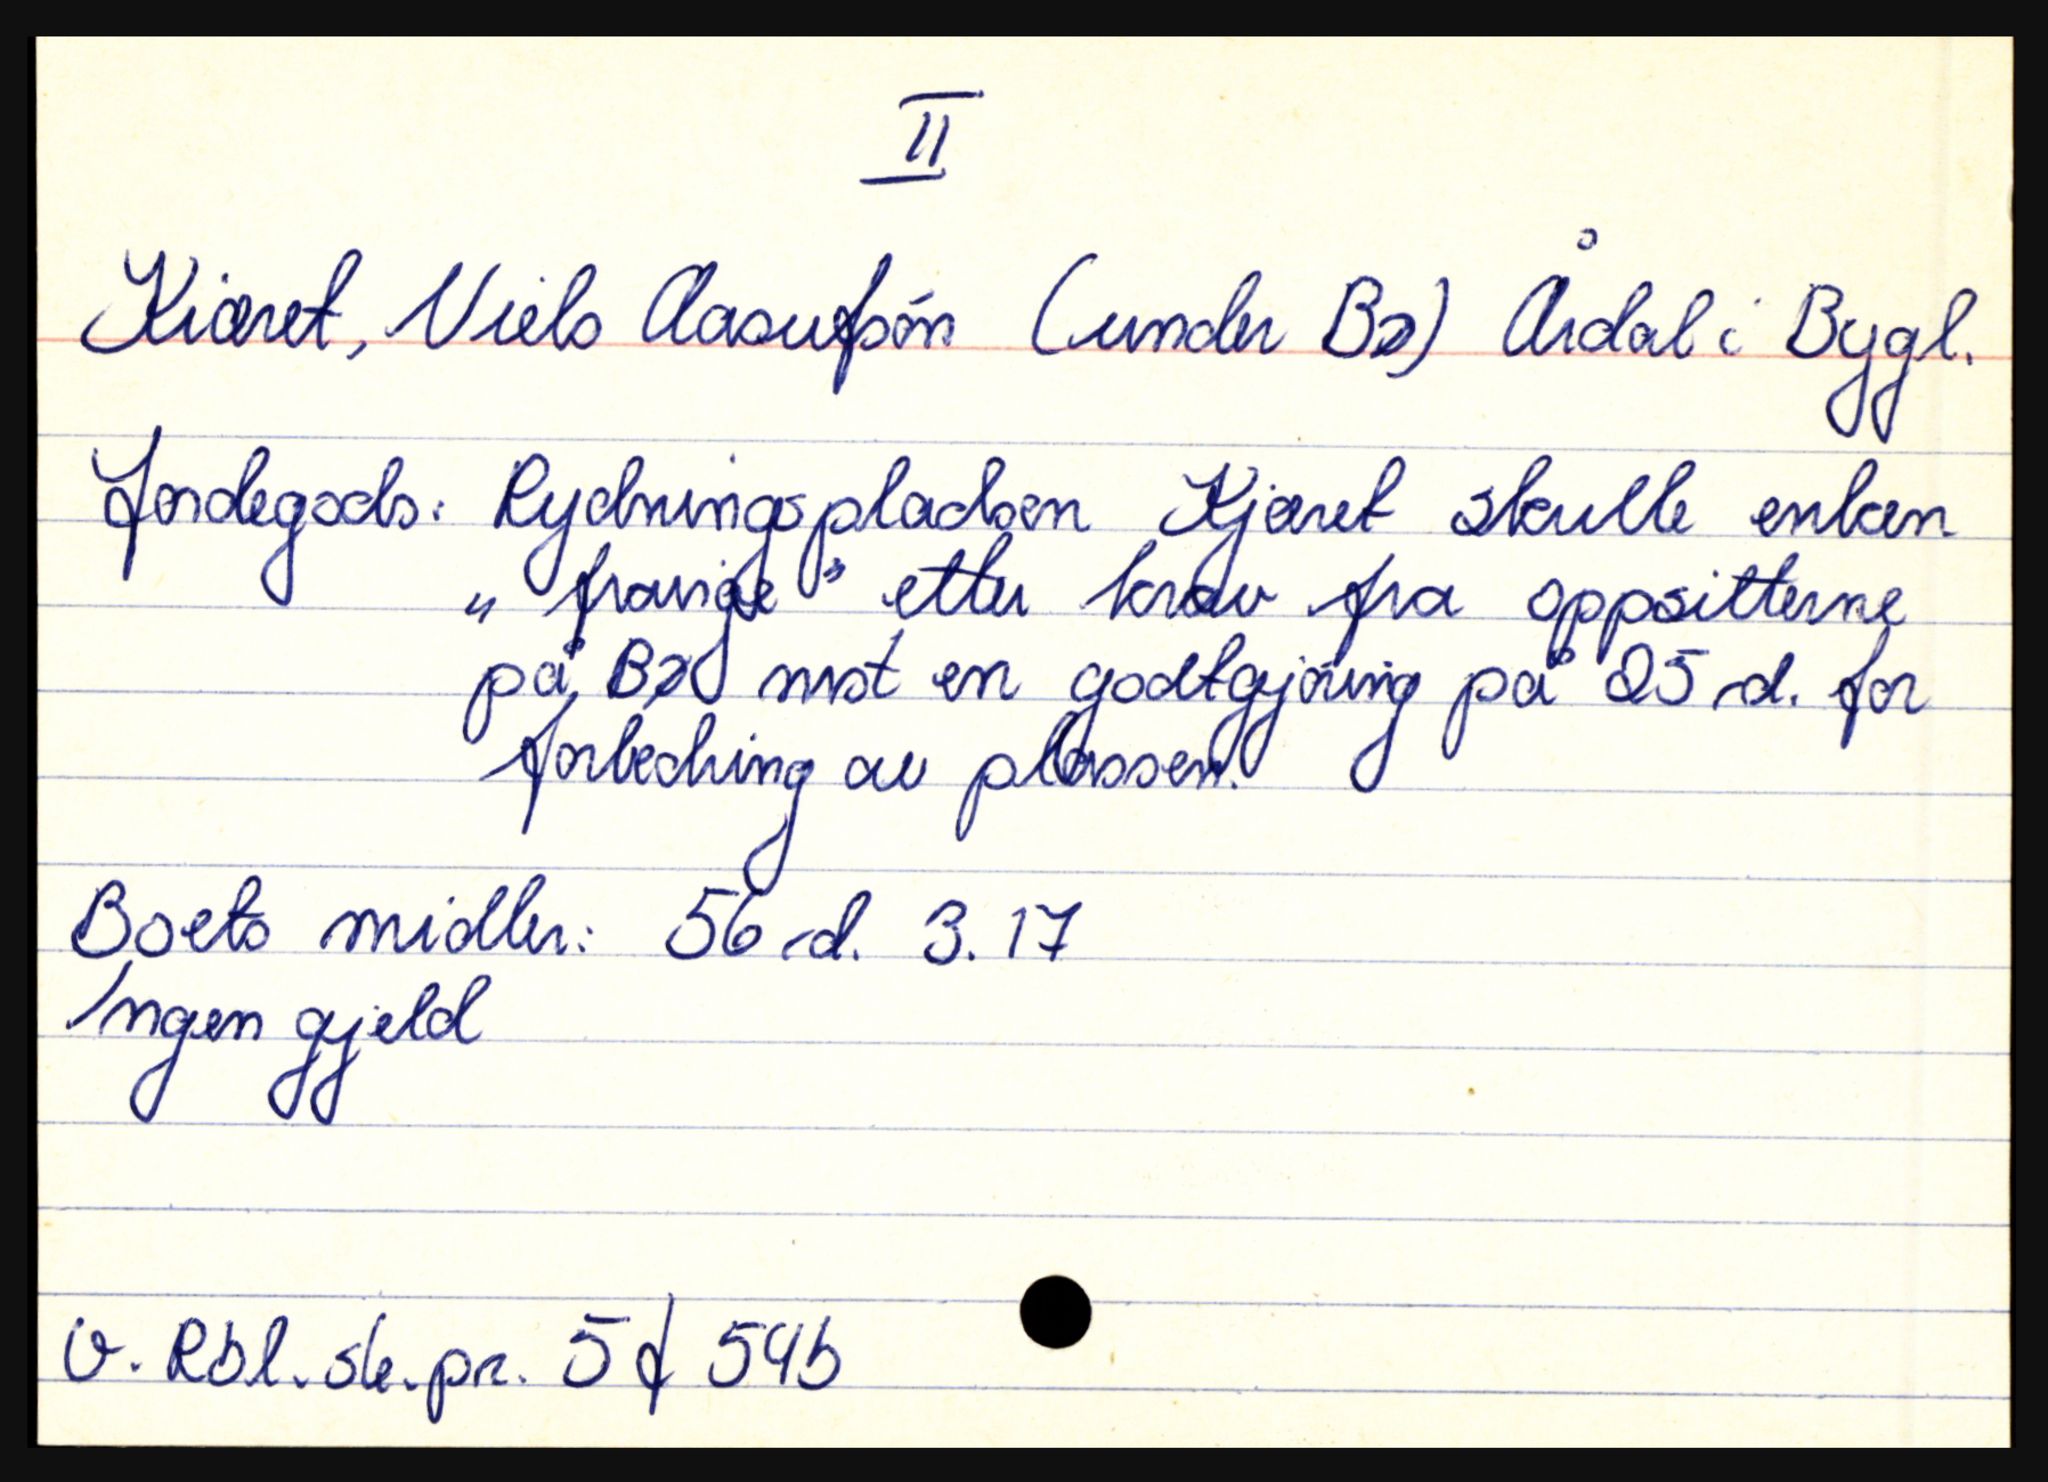 II
Kiæret, Niels Aasufsön (under Bø) Årdal i Bygl.
Jordegods: Rydningspladsen Kjæret skulle enken
„ fravige " etter krav fra oppsitterne
på Bø mot en godtgjöring på 25 rd. for
forbedring av plassen.
Boets midler: 56 rd. 3. 17
Ingen gjeld
V. Rbl. sk. pr. 5 f 54b